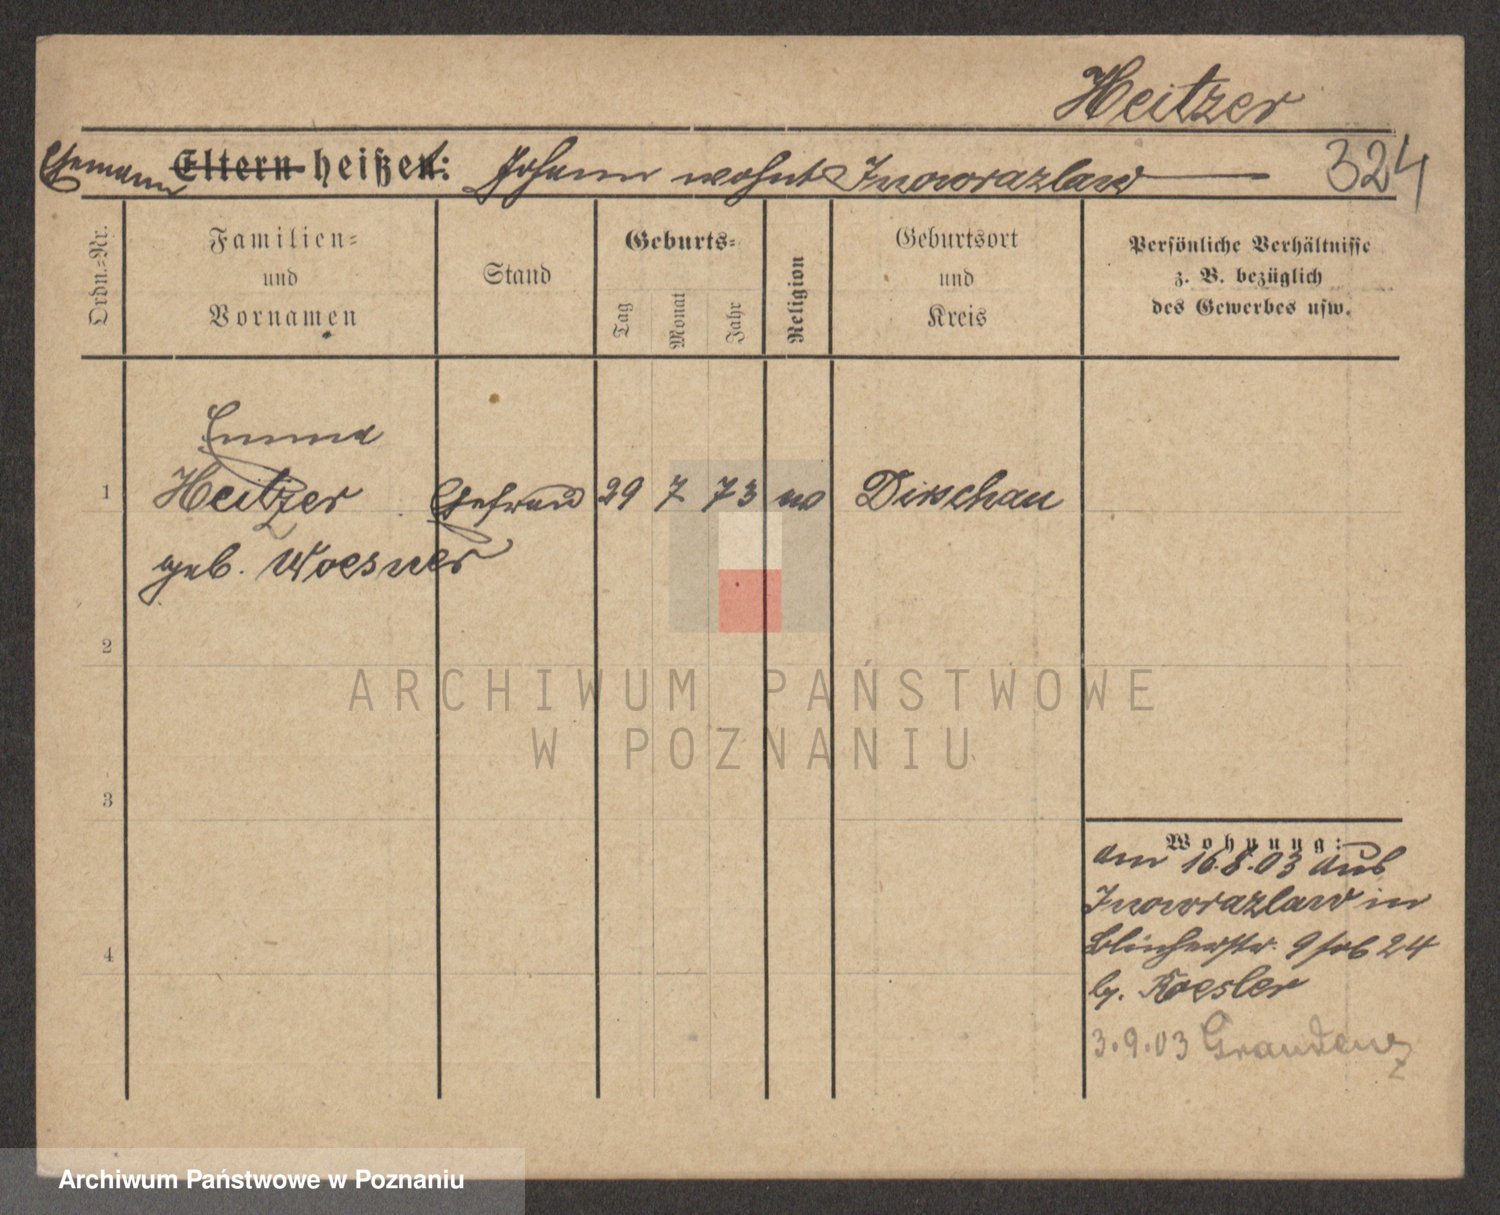 Heitzer
Ehemann Eltern heißet: Johann wohnt Inowrazlaw
324
Ordn.-Nr.
Familien-
und
Vornamen
Stand
Geburts-
Tag
Monat
Jahr
Religion
Geburtsort
und
Kreis
Persönliche Verhältnisse
z. B. bezüglich
des Gewerbes usw.
Emma
1 Heitzer Ehefrau 29 7 73 Dirschau
geb. Woesner
2
3
4
Wohnung:
am 16.8.03 aus
Inowrazlaw in
Blücherstr. 9 24
b. Roesler
3.9.03 Graudenz
ARCHIWUM PAŃSTWOWE
W POZNANIU
Archiwum Państwowe w Poznaniu